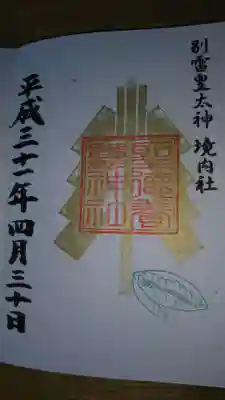 別雷皇太神 境内社
平成三十一年四月三十日